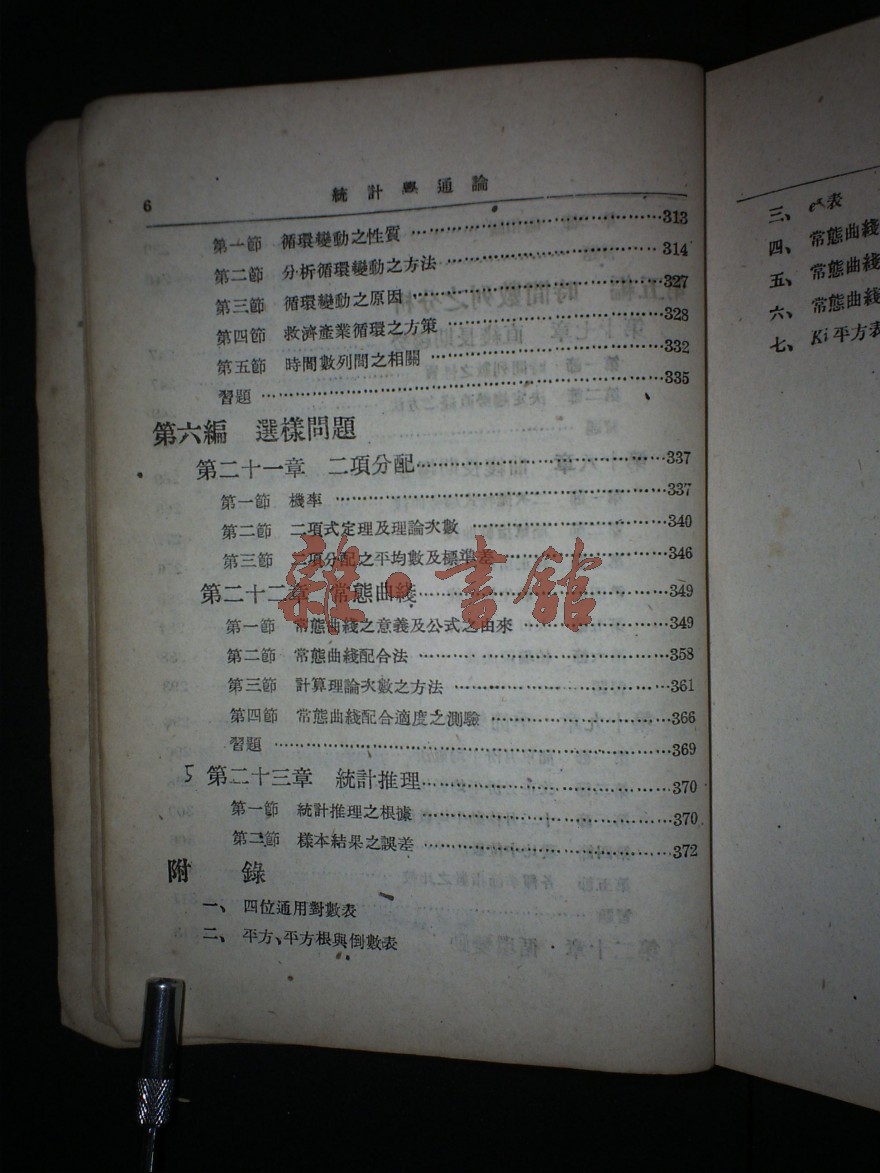 6
統計學通論
第一節 循環變動之性質 …… 313
第二節 分析循環變動之方法 …… 314
第三節 循環變動之原因 …… 327
第四節 救濟產業循環之方策 …… 328
第五節 時間數列間之相關 …… 332
習題 …… 335
第六編 選樣問題
第二十一章 二項分配 …… 337
第一節 機率 …… 337
第二節 二項式定理及理論次數 …… 340
第三節 二項分配之平均數及標準差 …… 346
第二十二章 常態曲綫 …… 349
第一節 常態曲綫之意義及公式之由來 …… 349
第二節 常態曲綫配合法 …… 358
第三節 計算理論次數之方法 …… 361
第四節 常態曲綫配合適度之測驗 …… 366
習題 …… 369
5 第二十三章 統計推理 …… 370
第一節 統計推理之根據 …… 370
第二節 樣本結果之誤差 …… 372
附 錄
一、 四位通用對數表
二、 平方、平方根與倒數表
三、 eˣ表
四、 常態曲綫
五、 常態曲綫
六、 常態曲綫
七、 Ki平方表
雜·書舘